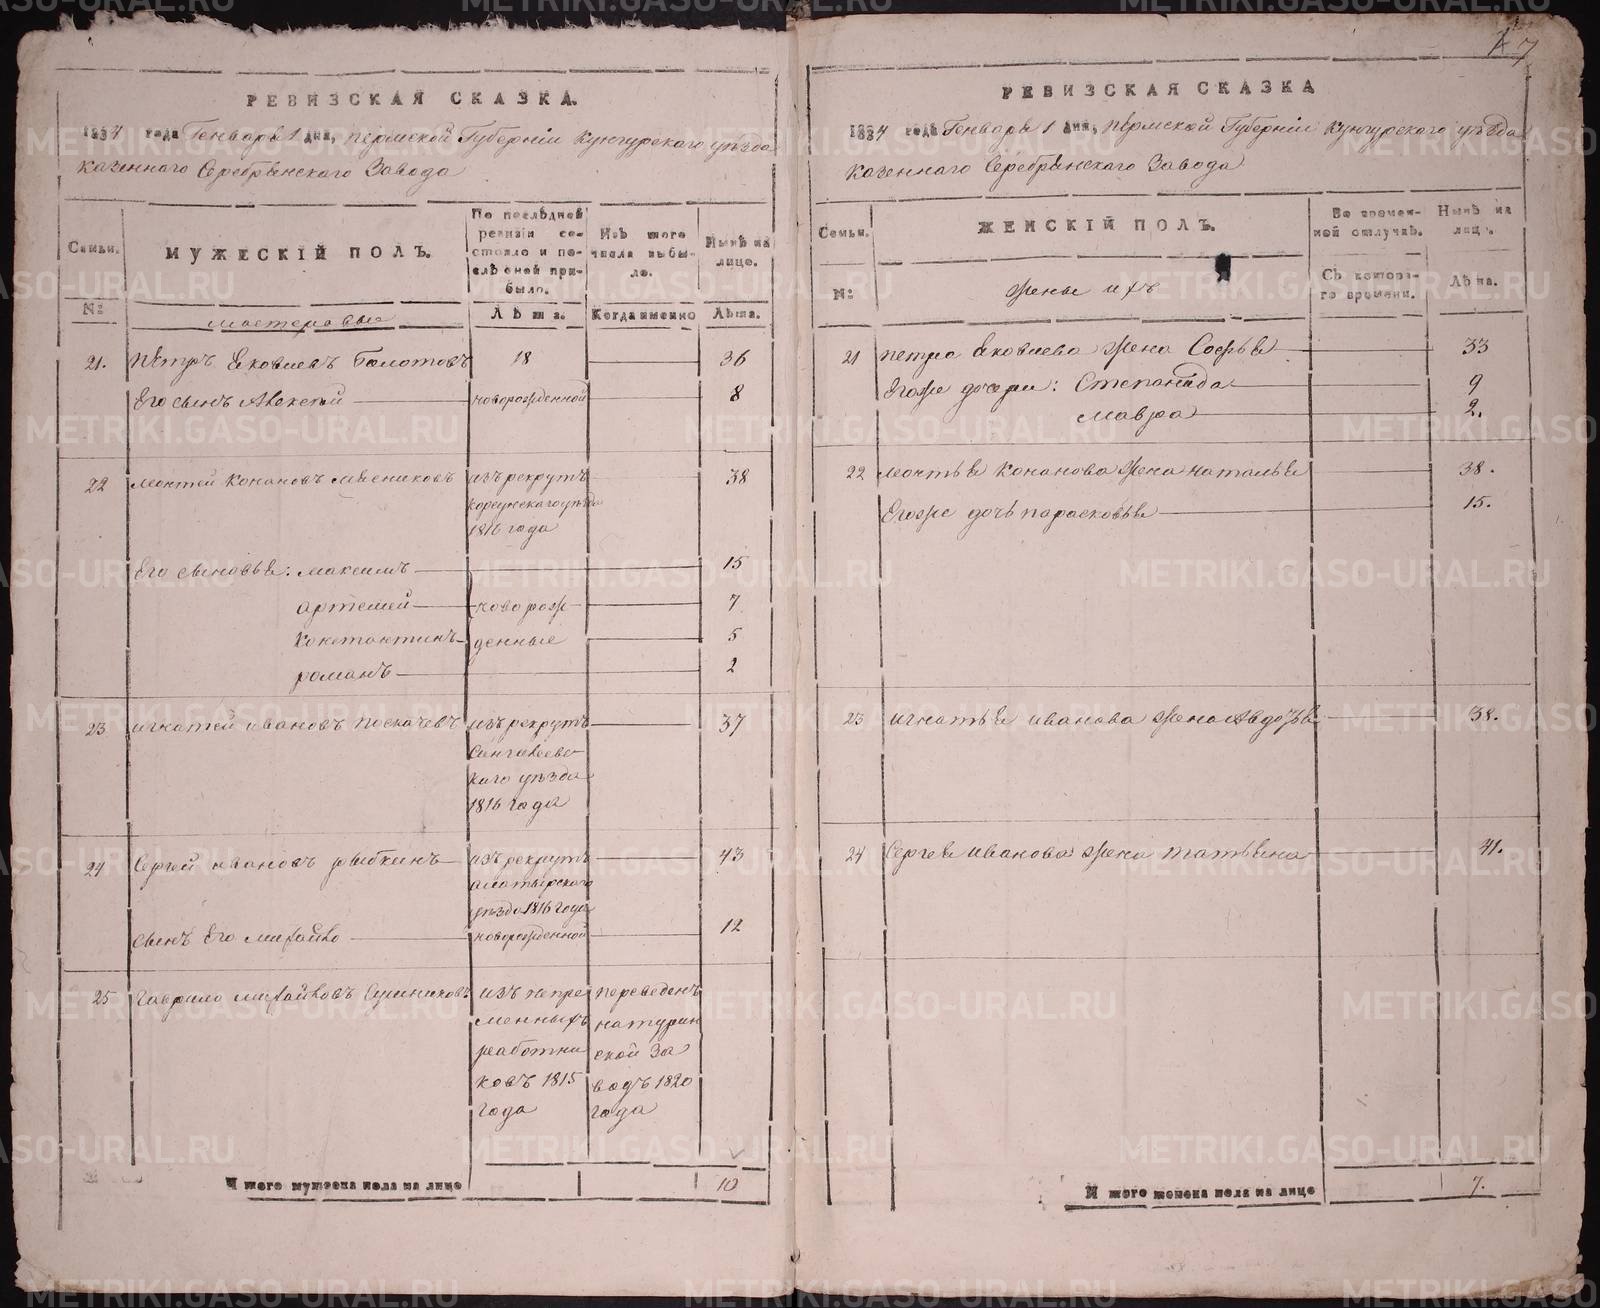 РЕВИЗСКАЯ СКАЗКА.
1834 года Генваря 1 дня, пермской Губерніи Кунгурского уѣзда
казенного Серебрянского Завода
Семьи.
МУЖЕСКІЙ ПОЛЪ.
По послѣдней ревизіи состояло и послѣ оной прибыло.
Изъ того числа выбыло.
Нынѣ на лице.
№:
мастеровые
Лѣта.
Когда именно
Лѣта.
21. Пётръ Яковлевъ Болотовъ 18 36
Его сынъ Алексей новорожденной 8
22 леонтей конановъ мясниковъ изъ рекрутъ 38
корсунскаго уѣзда
1816 года
Его сыновья: максимъ 15
артемей новорож- 7
константинъ денные 5
романъ 2
23 игнатей ивановъ поскачевъ изъ рекрутъ 37
каго уѣзда
1816 года
24 Сергей ивановъ рыбкинъ изъ рекрутъ 43
алатырскаго
уѣзда 1816 года
сынъ Его михайло новорожденной 12
25 гаврило михайловъ Сушниковъ изъ непре переведенъ
менныхъ на турин
работни ской За
ковъ 1815 водъ 1820
года года
Итого мужеска пола на лице 10
7
РЕВИЗСКАЯ СКАЗКА
1834 года Генваря 1 дня, пермской Губерніи Кунгурского уѣзда
казенного Серебрянского Завода
Семьи.
ЖЕНСКІЙ ПОЛЪ.
Во временной отлучкѣ.
Нынѣ на лицо.
№:
жены ихъ
Съ котораго времени.
Лѣта.
21 петра яковлева жена Софья 33
Егоже дочери: Степанида 9
мавра 2.
22 леонтья конанова жена наталья 38.
Егоже дочь парасковья 15.
23 игнатья иванова жена Авдотья 38.
24 Сергея иванова жена татьяна 41.
Итого женска пола на лице 7.
METRIKI.GASO-URAL.RU